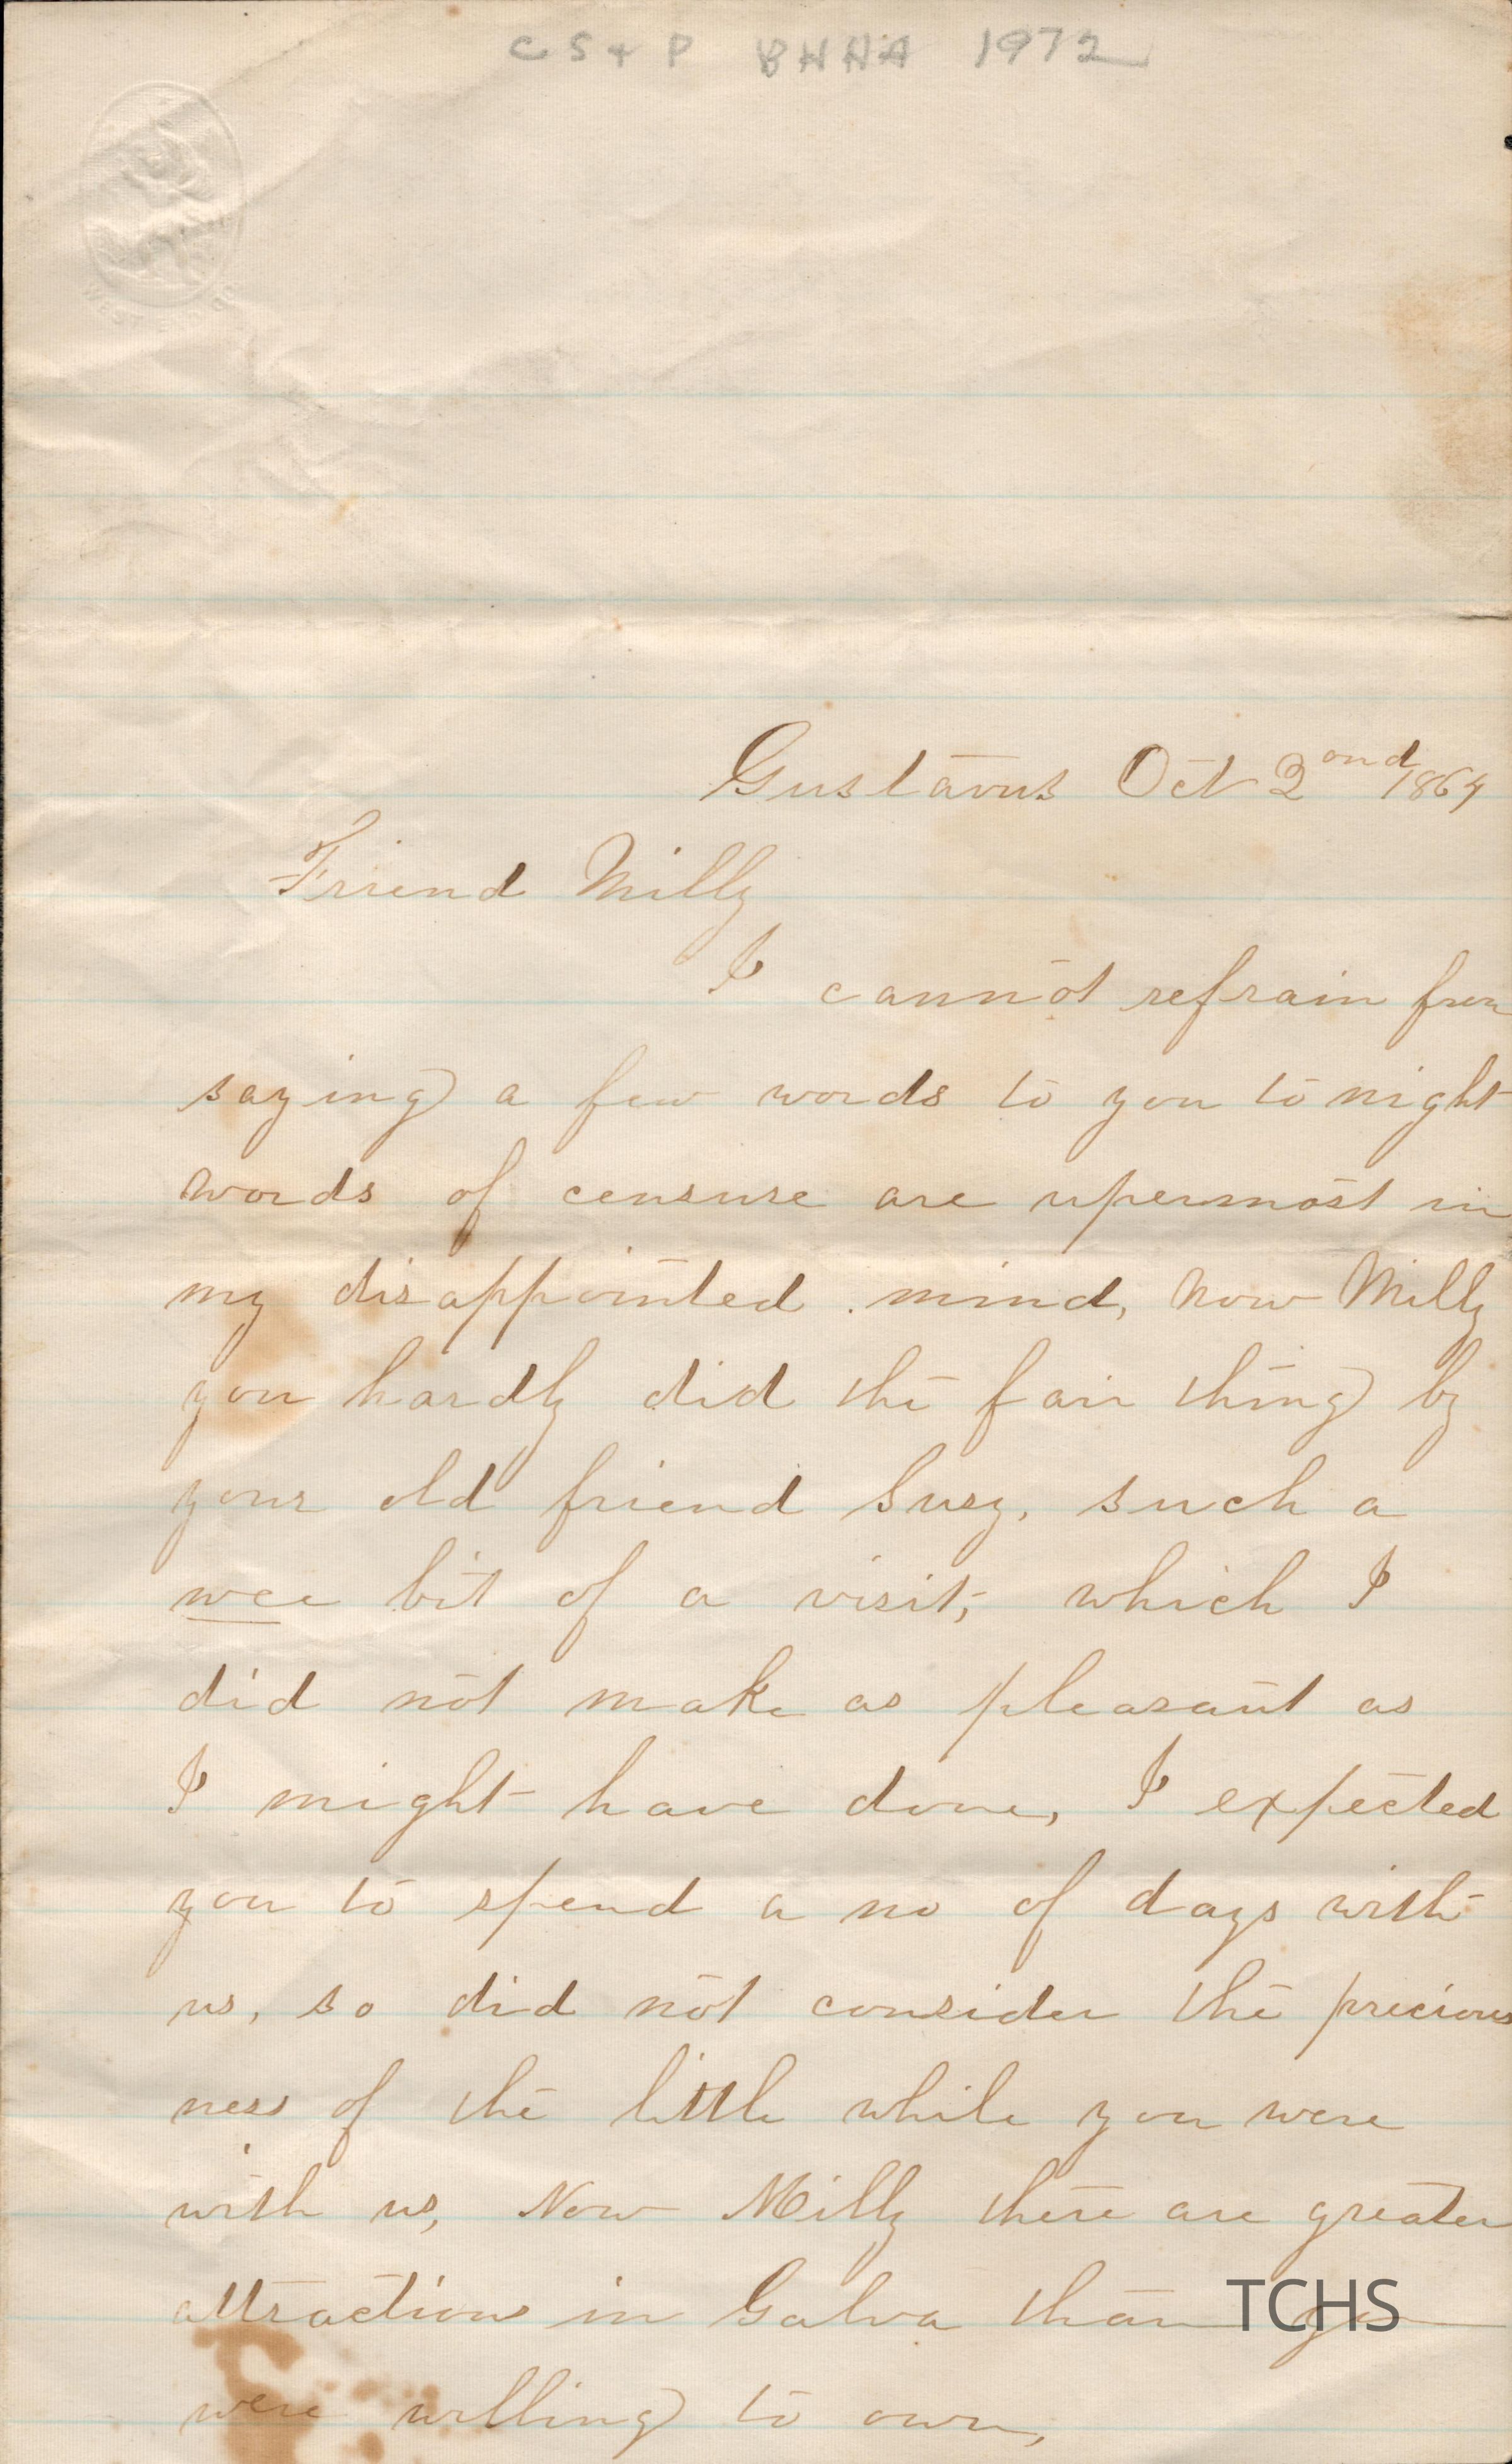 CS+P BHHA 1972
Gustavus Oct 2ond 1864
Friend Milly
I cannot refrain from
saying a few words to you to night
words of censure are upermost in
my disappointed mind, Now Milly
you hardly did the fair thing by
your old friend Suzy, such a
wee bit of a visit, which I
did not make as pleasant as
I might have done, I expected
you to spend a no of days with
us, so did not consider the precious
ness of the little while you were
with us, Now Milly there are greater
attractions in Galva than you
TCHS
were willing to own,